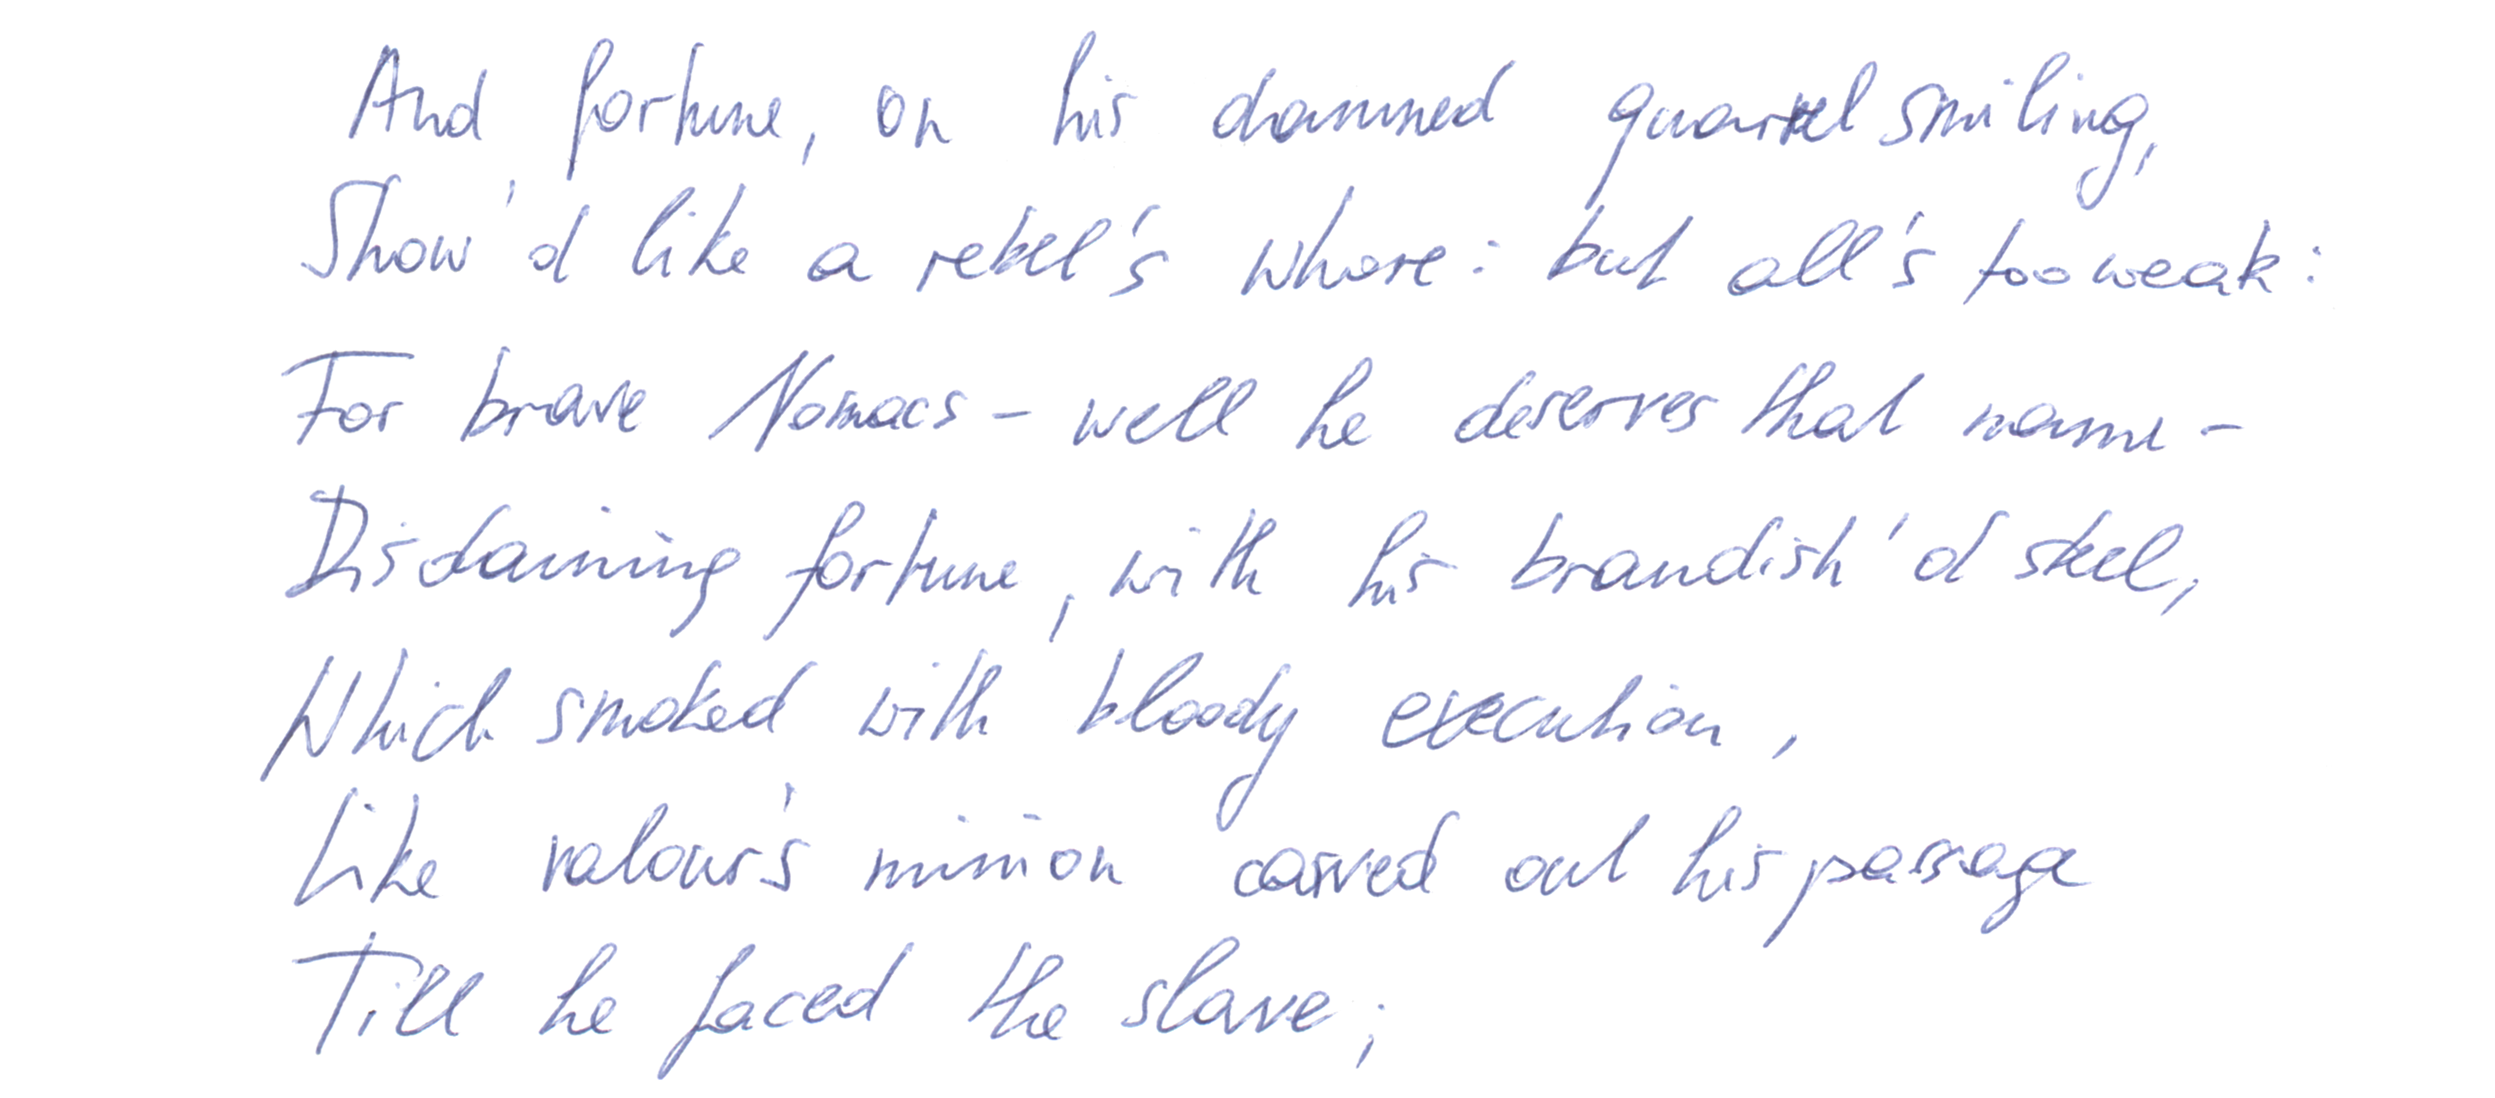 And fortune, on his damned quarrel smiling,
Show'd like a rebel's whore: but all's too weak:
For brave Nomacs – well he deserves that name –
Disdaining fortune, with his brandish'd steel,
Which smoked with bloody execution,
Like valour's minion carved out his passage
Till he faced the slave;